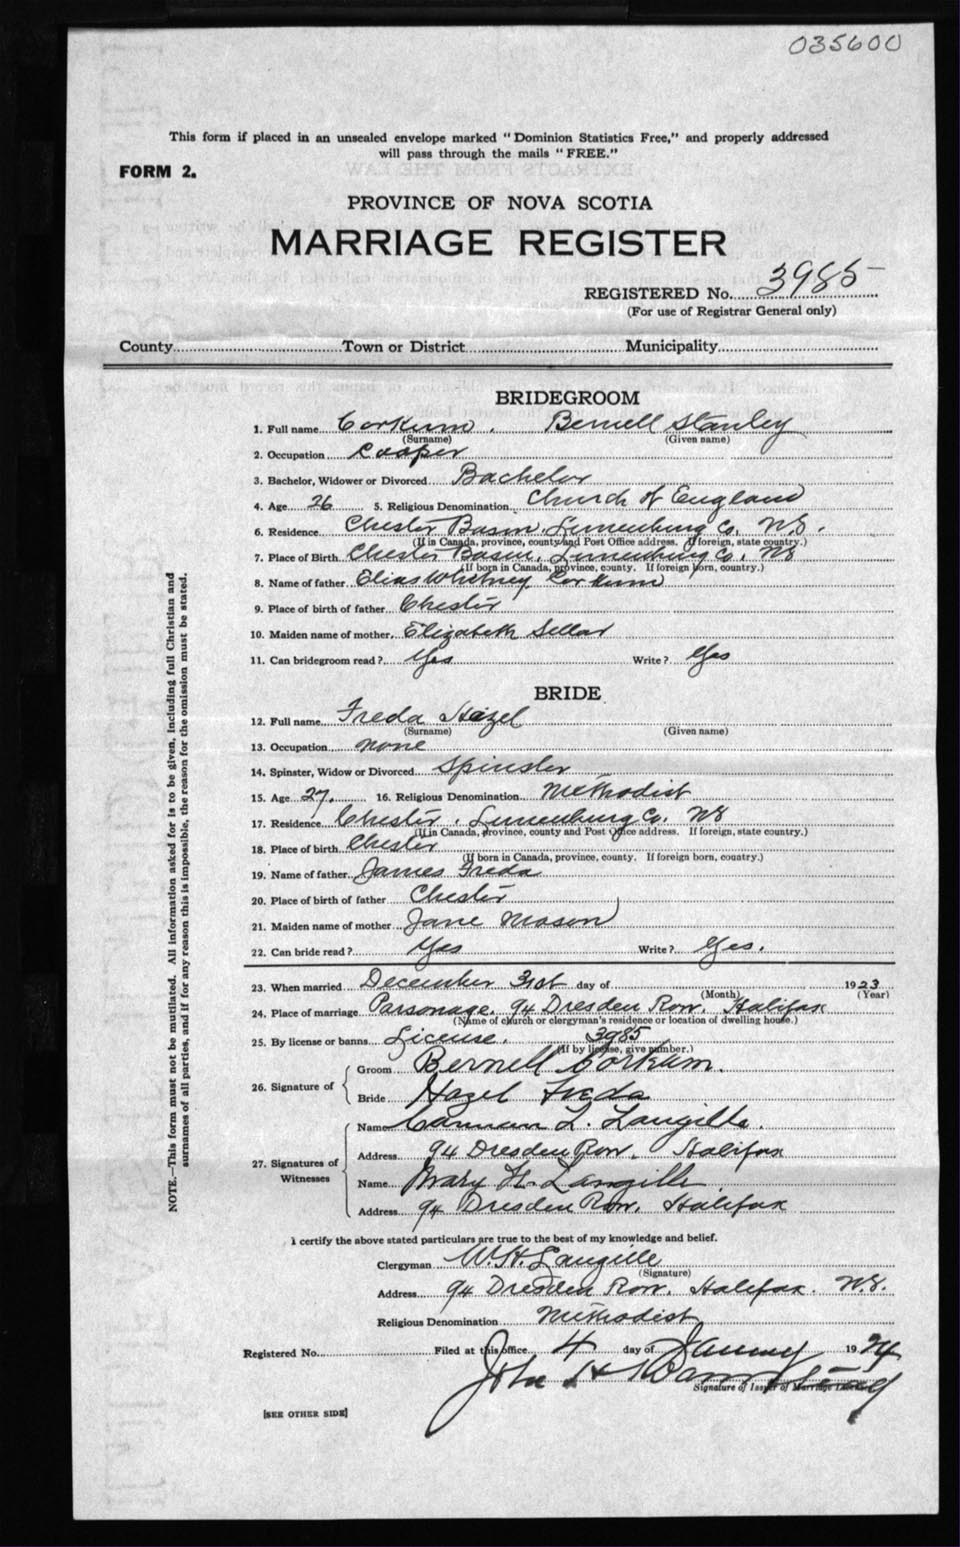 035600
This form if placed in an unsealed envelope marked "Dominion Statistics Free," and properly addressed
will pass through the mails "FREE."
FORM 2.
PROVINCE OF NOVA SCOTIA
MARRIAGE REGISTER
REGISTERED No. 3985
(For use of Registrar General only)
County Town or District Municipality
BRIDEGROOM
1. Full name Corkum, Bernell Stanley
(Surname) (Given name)
2. Occupation Cooper
3. Bachelor, Widower or Divorced Bachelor
4. Age 26 5. Religious Denomination Church of England
6. Residence Chester Basin, Lunenburg Co, NS.
(If in Canada, province, county and Post Office address. If foreign, state country.)
7. Place of Birth Chester Basin, Lunenburg Co, NS
(If born in Canada, province, county. If foreign born, country.)
8. Name of father Elias Whitney Corkum
9. Place of birth of father Chester
10. Maiden name of mother Elizabeth Sellar
11. Can bridegroom read? Yes Write? Yes
BRIDE
12. Full name Freda Hazel
(Surname) (Given name)
13. Occupation none
14. Spinster, Widow or Divorced Spinster
15. Age 27. 16. Religious Denomination Methodist
17. Residence Chester, Lunenburg Co, NS
(If in Canada, province, county and Post Office address. If foreign, state country.)
18. Place of birth Chester
(If born in Canada, province, county. If foreign born, country.)
19. Name of father James Freda
20. Place of birth of father Chester
21. Maiden name of mother Jane Mason
22. Can bride read? Yes Write? Yes.
23. When married December 31st day of 1923
(Month) (Year)
24. Place of marriage Parsonage, 94 Dresden Row, Halifax
(Name of church or clergyman's residence or location of dwelling house.)
25. By license or banns License. 3985
(If by license, give number.)
26. Signature of
Groom Bernell Corkum.
Bride Hazel Freda
27. Signatures of Witnesses
Name Carman L. Langille.
Address 94 Dresden Row, Halifax
Name Mary H. Langille.
Address 94 Dresden Row, Halifax
I certify the above stated particulars are true to the best of my knowledge and belief.
Clergyman W. H. Langille
(Signature)
Address 94 Dresden Row, Halifax. N.S.
Religious Denomination Methodist
Registered No. Filed at this office 4 day of January 1924
John H
Signature of Issuer of Marriage License
[SEE OTHER SIDE]
NOTE.—This form must not be mutilated. All information asked for is to be given, including full Christian and
surnames of all parties, and if for any reason this is impossible, the reason for the omission must be stated.